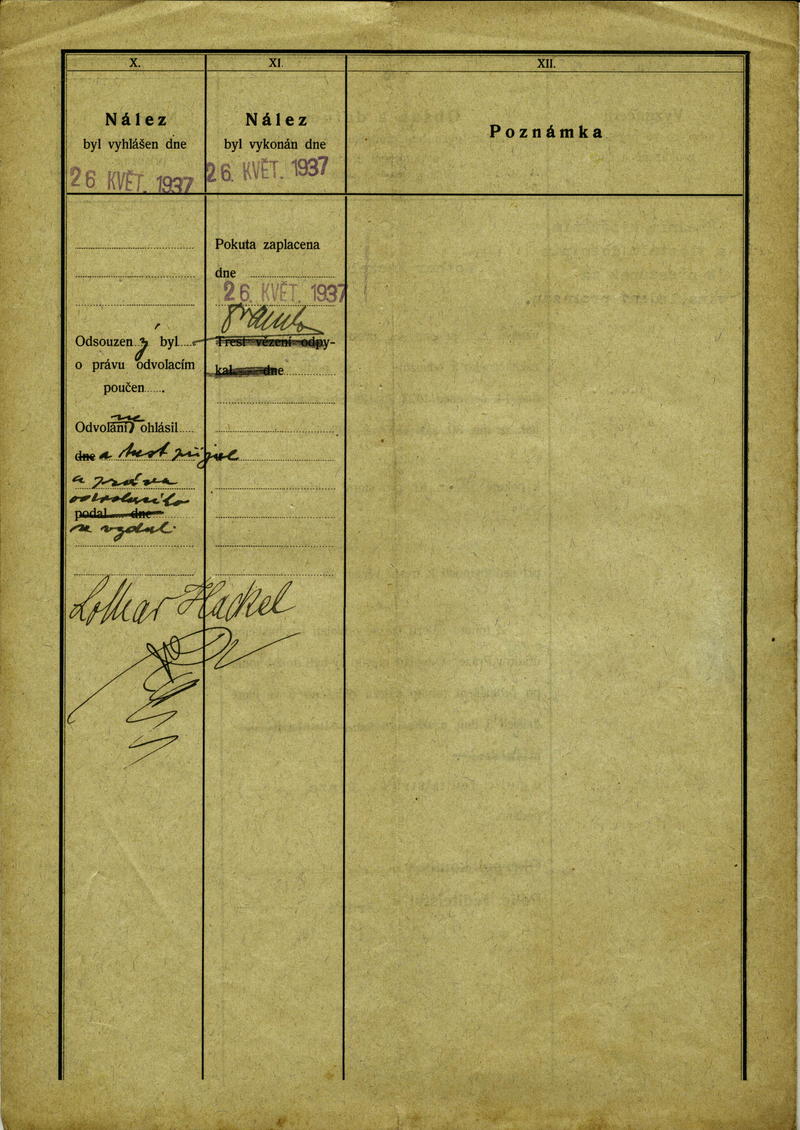 X.
Nález
byl vyhlášen dne
26 KVĚT. 1937
Odsouzen ý byl
o právu odvolacím
poučen .
Odvolání ne ohlásil
dne a trest přijal
a práva
odvolacího
podal dne
se vzdal.
Lothar Hackel
XI.
Nález
byl vykonán dne
26. KVĚT. 1937
Pokuta zaplacena
dne
26. KVĚT. 1937
Trest vězení odpy-
kal dne
XII.
Poznámka